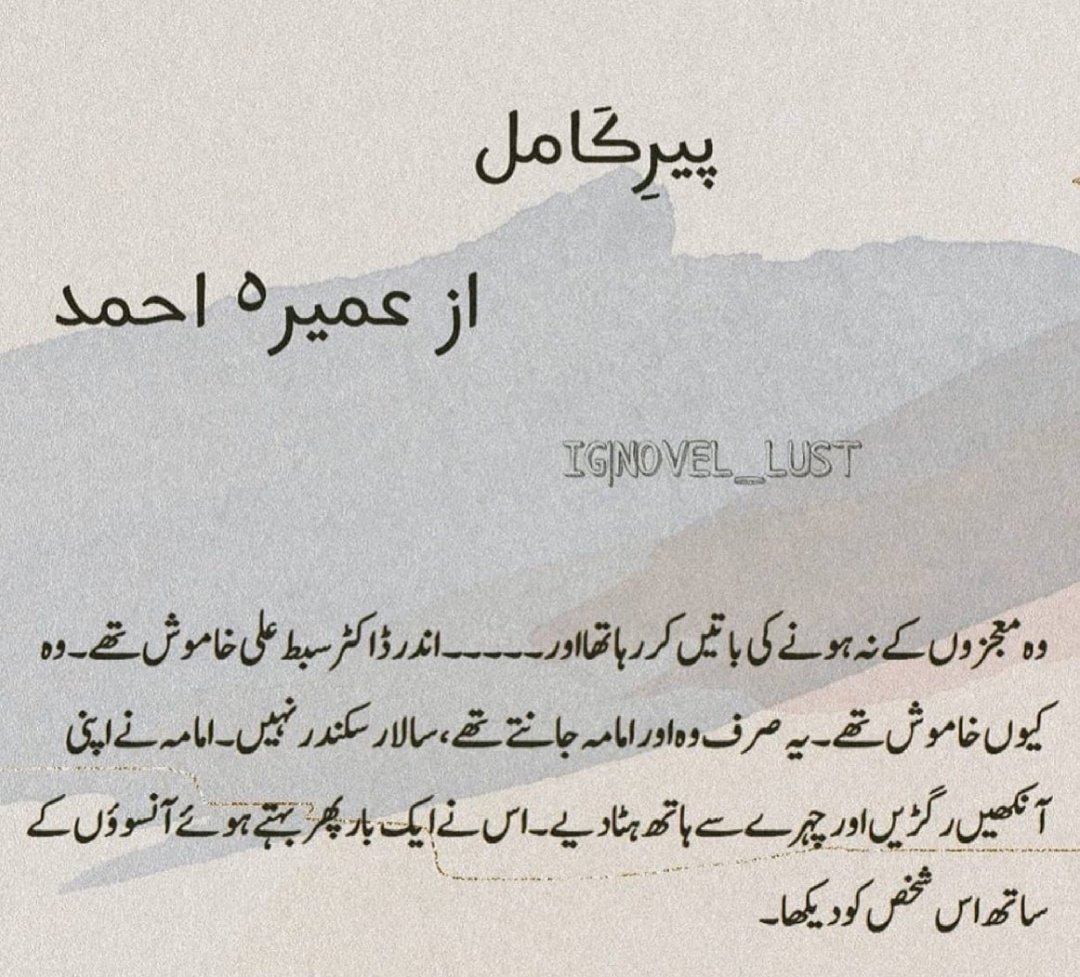 پیرِکَامل
از عمیرہ احمد
IG|NOVEL_LUST
وہ معجزوں کے نہ ہونے کی باتیں کر رہا تھا اور۔۔۔۔۔ اندر ڈاکٹر سبط علی خاموش تھے۔ وہ
کیوں خاموش تھے۔ یہ صرف وہ اور امامہ جانتے تھے، سالار سکندر نہیں۔ امامہ نے اپنی
آنکھیں رگڑیں اور چہرے سے ہاتھ ہٹا دیے۔ اس نے ایک بار پھر بہتے ہوئے آنسوؤں کے
ساتھ اس شخص کو دیکھا۔